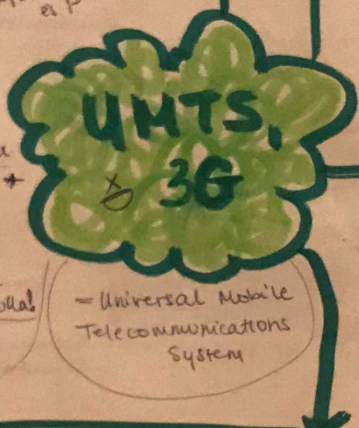 UMTS,
3G
= Universal Mobile
Telecommunications
System